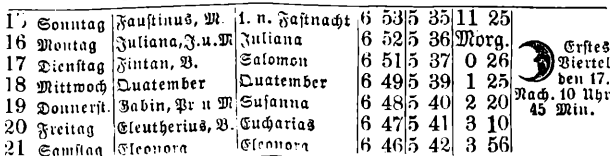 15 Sonntag Faustinus, M. 1. n. Fastnacht 6 53 5 35 11 25
16 Montag Juliana, J.u.M Juliana 6 52 5 36 Morg.
17 Dienstag Fintan, B. Salomon 6 51 5 37 0 26
18 Mittwoch Quatember Quatember 6 49 5 39 1 25
19 Donnerst. Gabin, Pr u M Susanna 6 48 5 40 2 20
20 Freitag Eleutherius, B. Eucharias 6 47 5 41 3 10
21 Samstag Eleonora Eleonora 6 46 5 42 3 56
Erstes
Viertel
den 17.
Nach. 10 Uhr
45 Min.